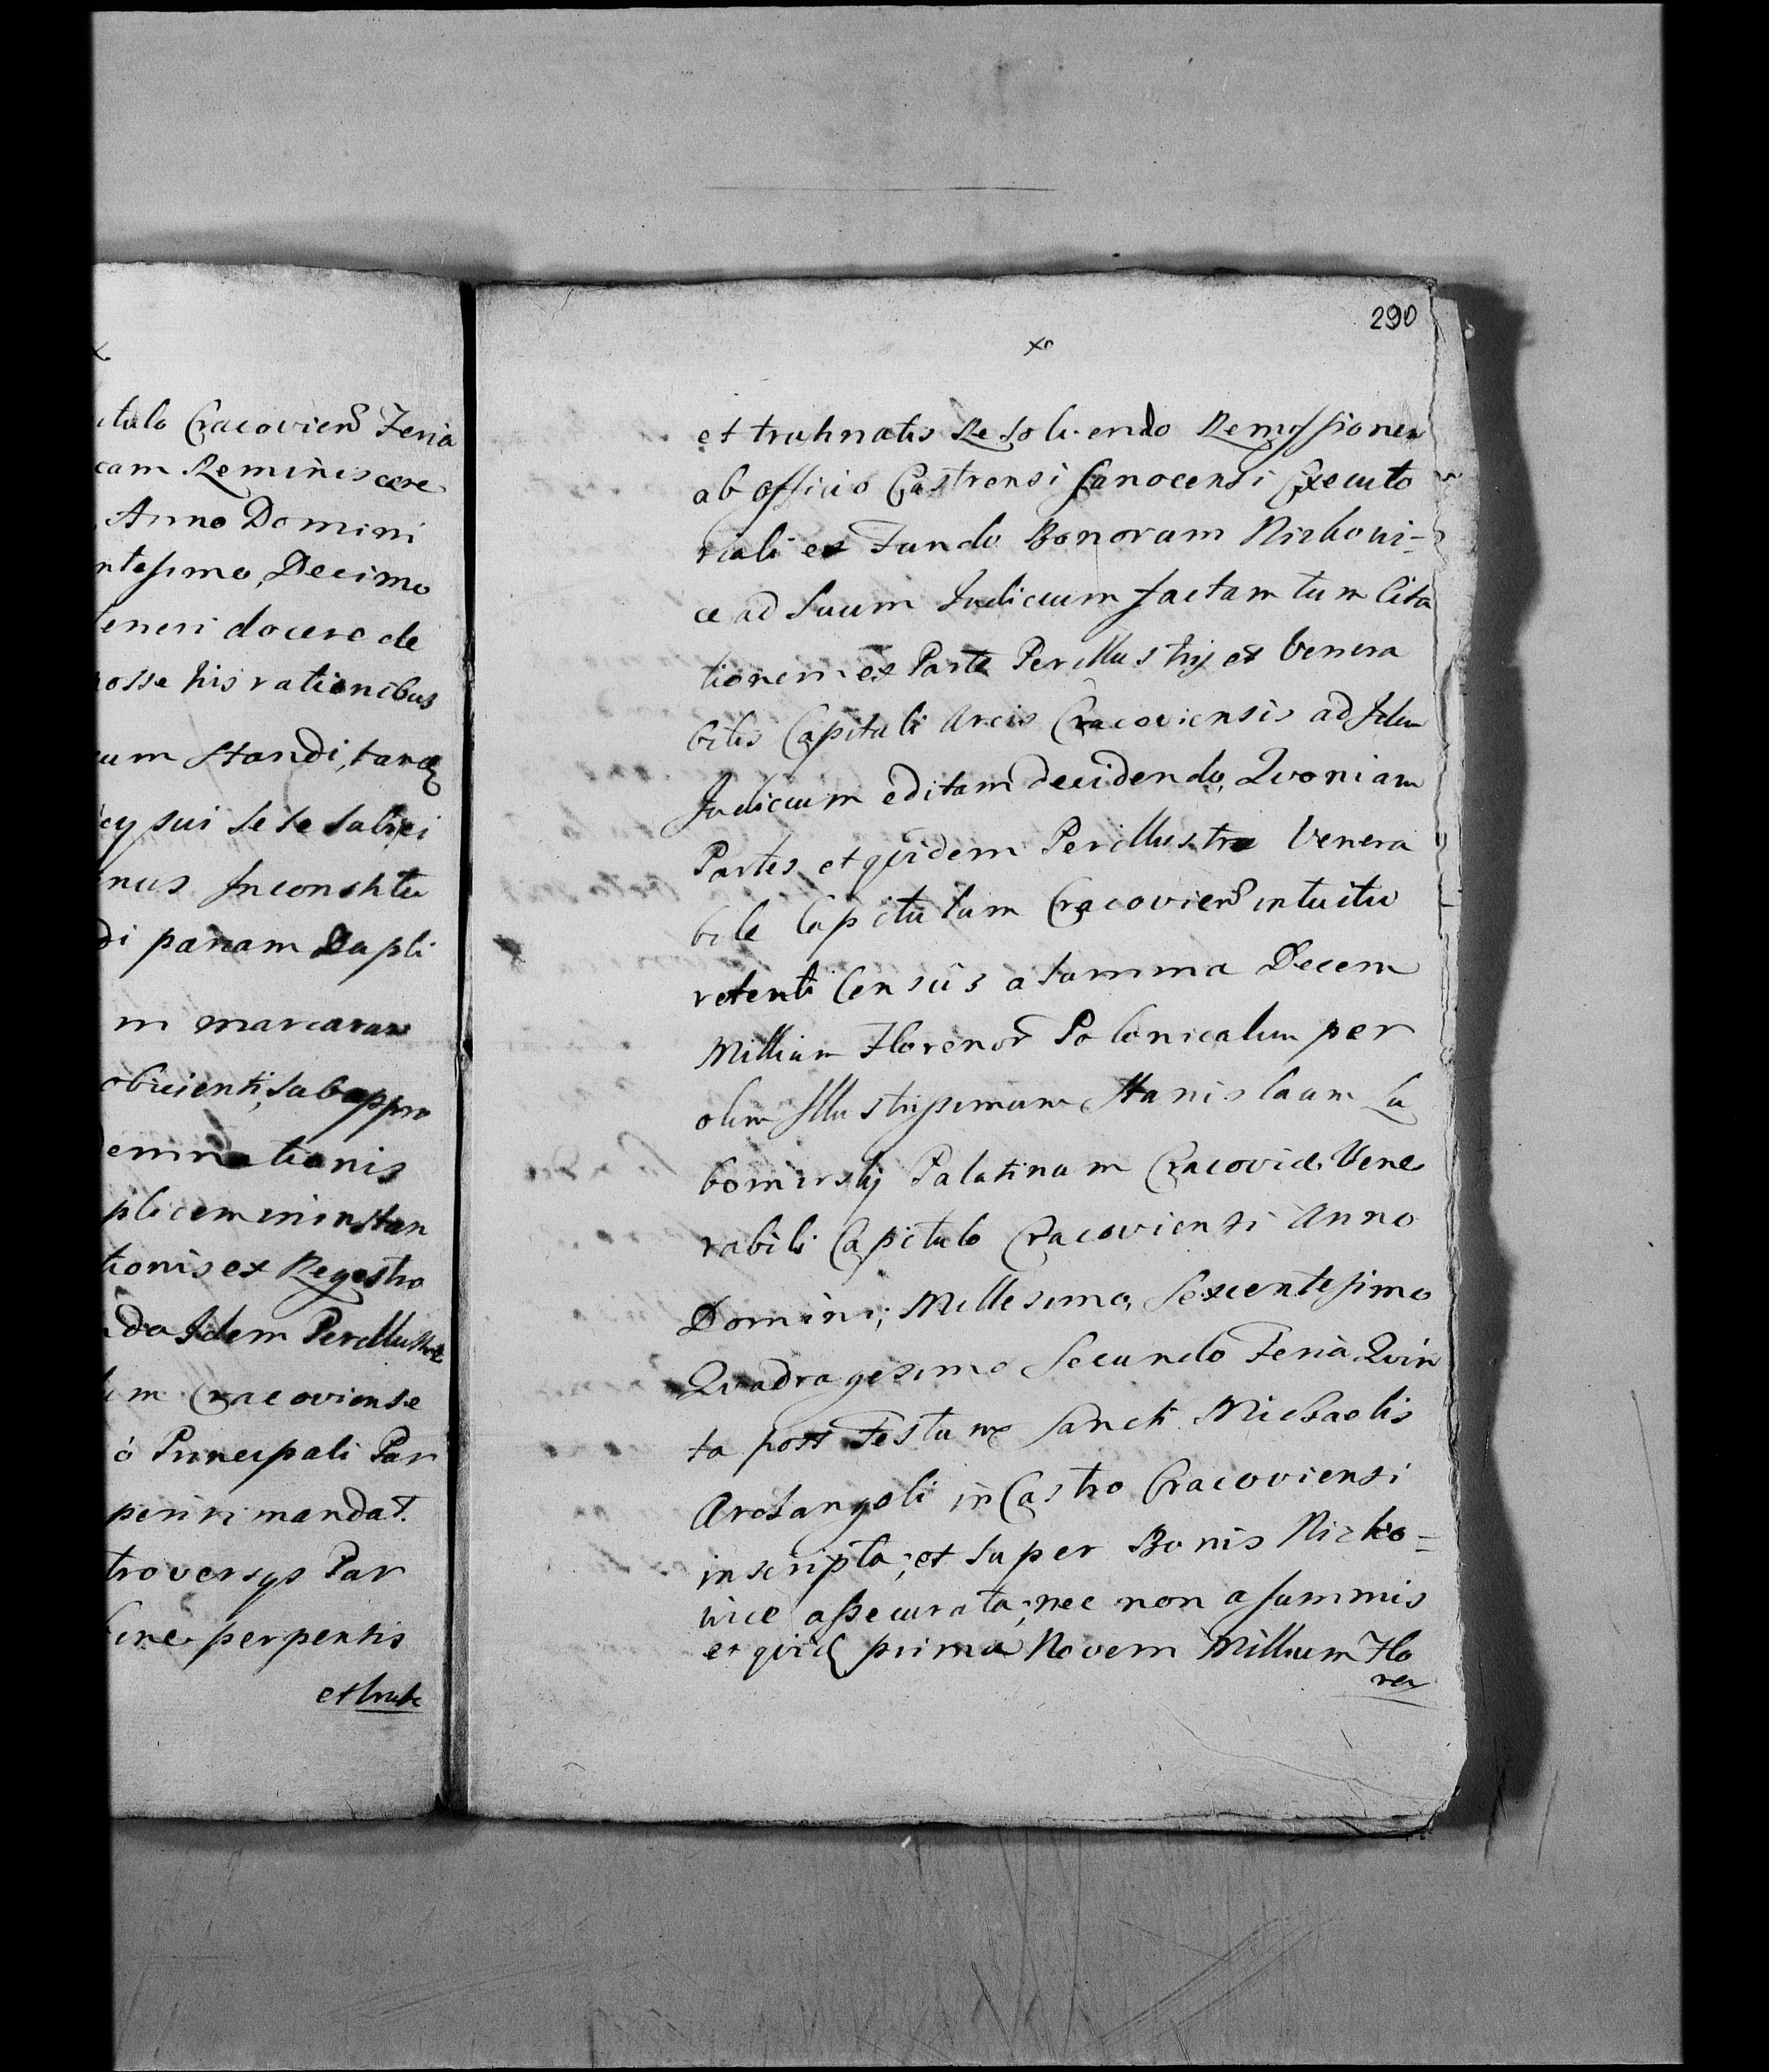 itulo Cracovien Feria
cam Reminiscere
Anno Domini
ntesimo, Decimo
teneri docere de
posse his rationibus
um standi, tanq
cy sui se se subyci
nus Inconstitu
di pænam Dupli
m marcarum
obiicienti, sub appro
demnationis
plicem in instan
tionis ex Regestro
do Idem Perillustre
lum Cracoviense
ò Principali Par
periri mandat.
troversys Par
bene perpensis
et trut
290
xo
et trutinatis Resolvendo Remissionem
ab officio Castrensi Sanocensi Executo
riali ex Fundo Bonorum Nizkowi-
ce ad suum Judicium factam tum Cita
tionem ex Parte Perillustris et Venera
bilis Capituli Arcis Cracoviensis ad Idem
Judicium editam decidendo, Quoniam
Partes et quidem Perillustre Venera
bile Capitulum Cracovien intuitu
retenti Censùs a summa Decem
Millium Florenor Polonicalium per
olim Illustrissimum Stanislaum Lu
bomirsky Palatinum Cracoviæ Vene
rabili Capitulo Cracoviensi Anno
Domini, Millesimo, Sexcentesimo
Quadragesimo Secundo Feria Quin
ta post Festum Sancti Michaelis
Archangeli in Castro Cracoviensi
inscripta; et super Bonis Nizko-
wice assecurata; nec non a summis
et quid prima Novem Millium Flo
ren